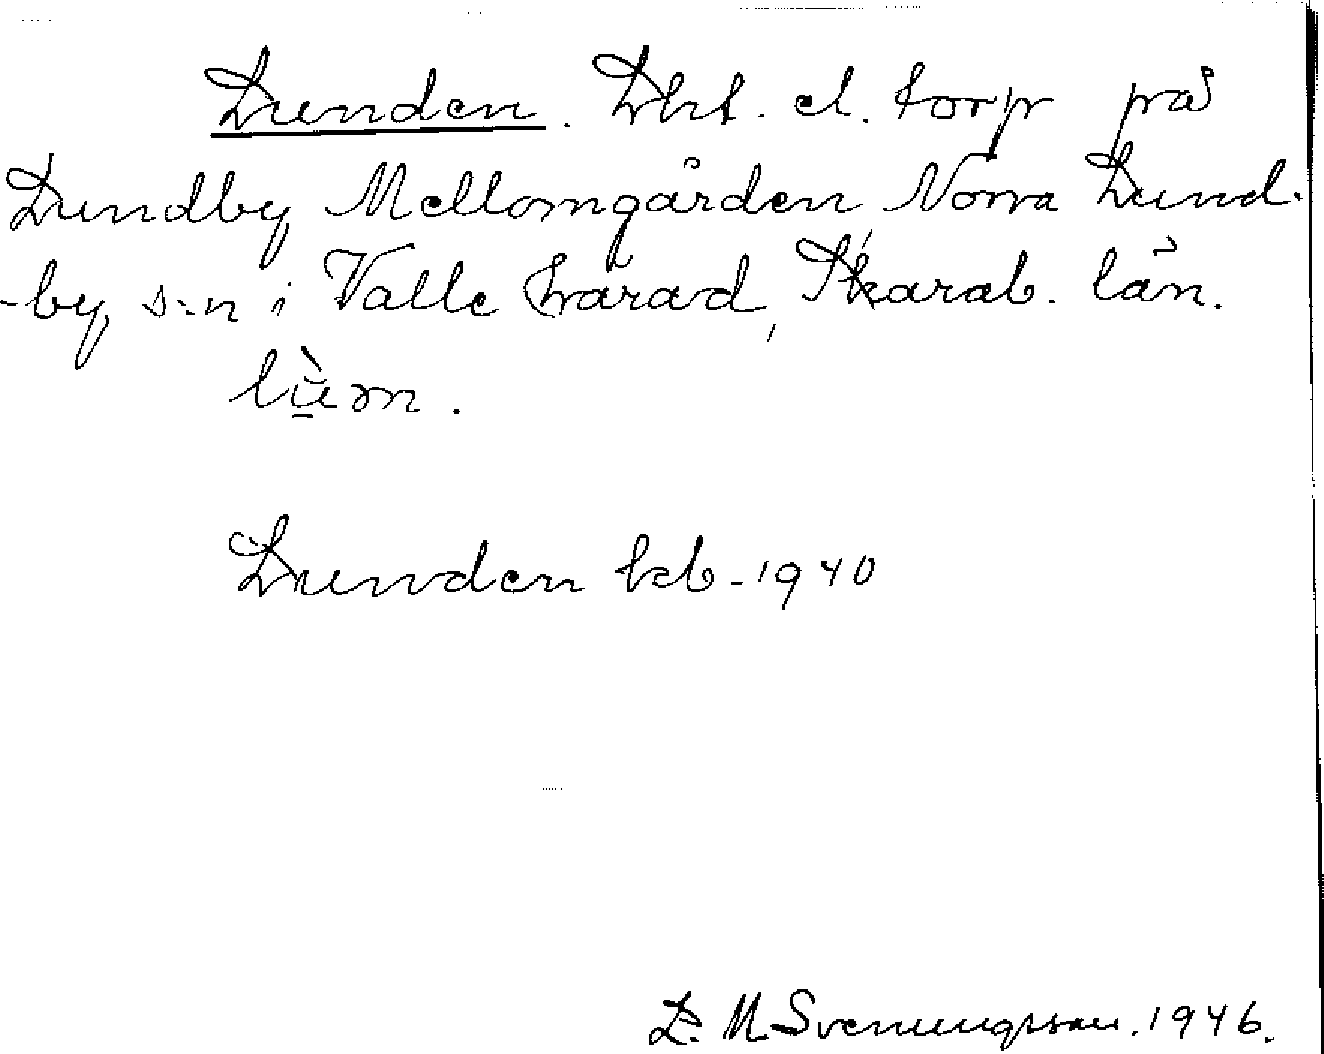 Lunden. Lht. el. torp på
Lundby Mellomgården, Norra Lund-
-by s:n i Valle härad, Skarab. län.
lùm.
Lunden kb-1940
L. M. Svenungsson. 1946.